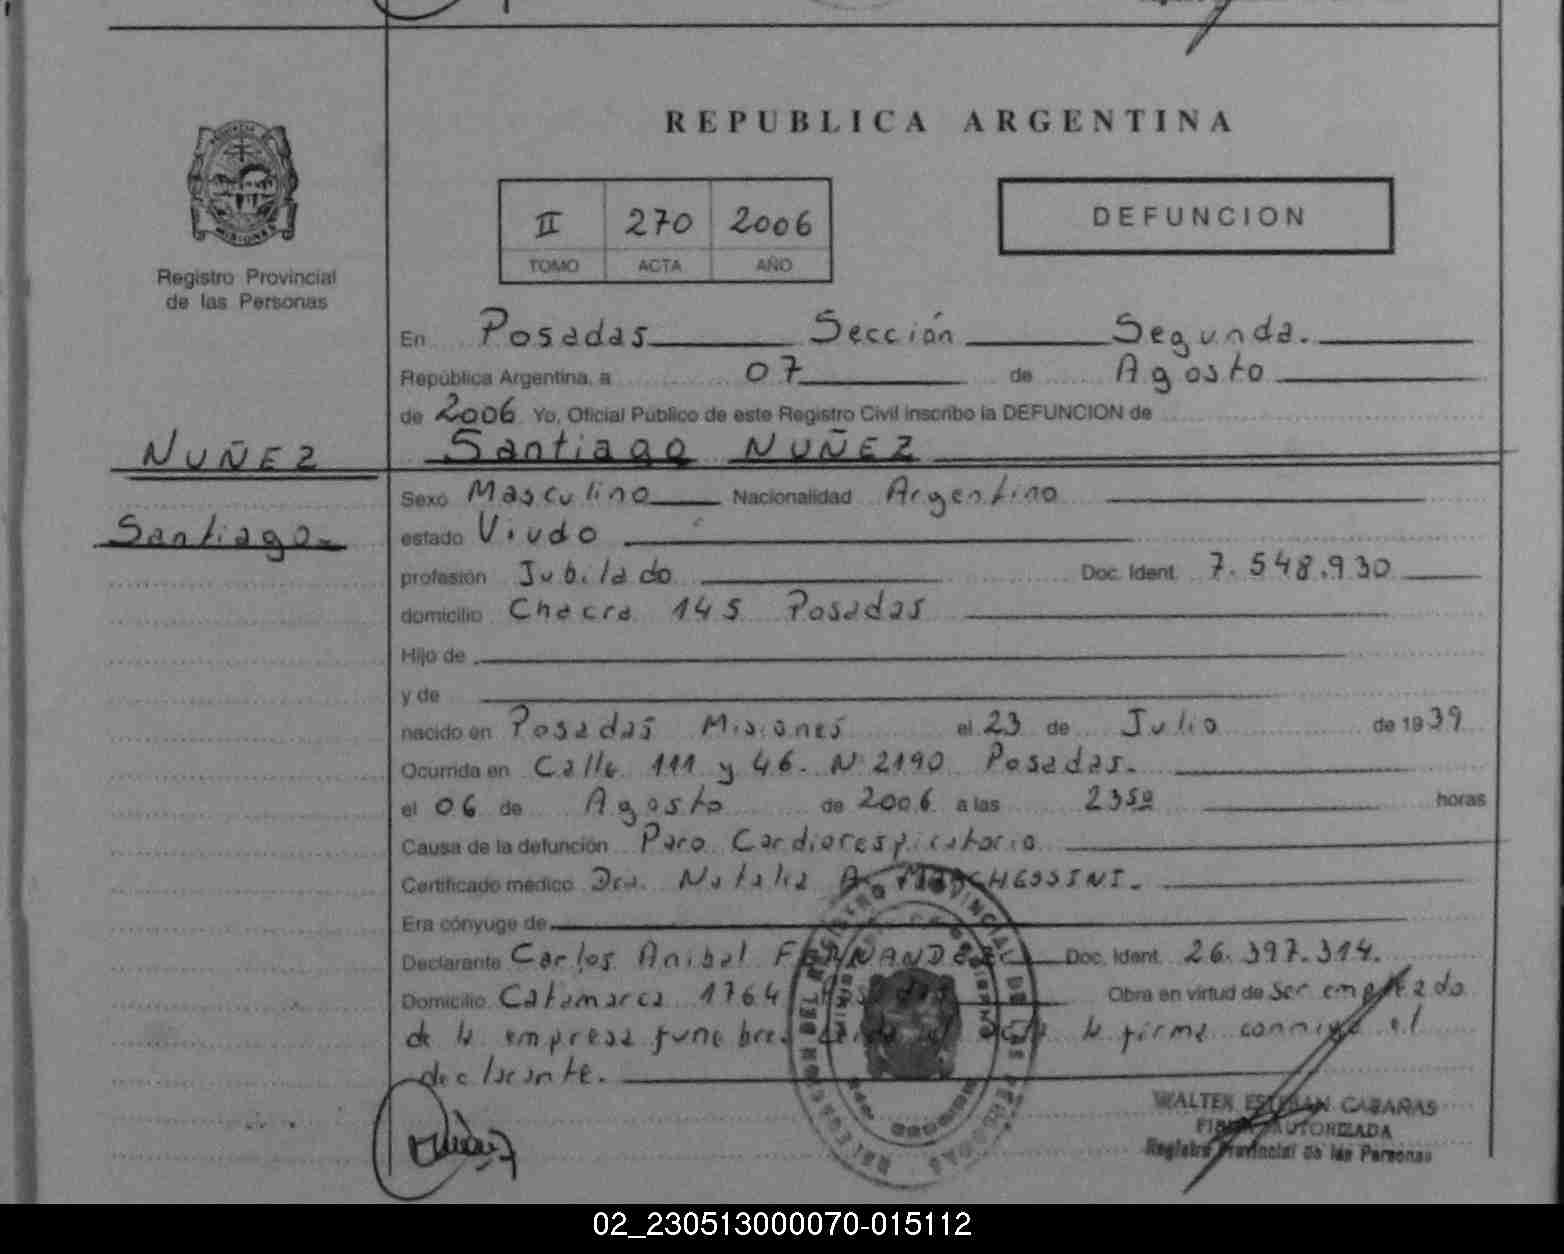 REPUBLICA ARGENTINA
II 270 2006
TOMO ACTA AÑO
DEFUNCION
MISIONES
Registro Provincial
de las Personas
En Posadas Sección Segunda.
República Argentina, a 07 de Agosto
de 2006 Yo, Oficial Público de este Registro Civil inscribo la DEFUNCION de
NUÑEZ
Santiago NUÑEZ
Sexo Masculino Nacionalidad Argentino
Santiago
estado Viudo
profesión Jubilado Doc. Ident. 7.548.930
domicilio Chacra 145 Posadas
Hijo de
y de
nacido en Posadas Misiones el 23 de Julio de 1939
Ocurrida en Calle 111 y 46. N 2190 Posadas.
el 06 de Agosto de 2006 a las 2350 horas
Causa de la defunción Paro Cardiorespiratorio
Certificado médico Dra. Natalia A. MARCHESSINI.
Era cónyuge de
Declarante Carlos Anibal FERNANDEZ Doc. Ident. 26.397.314.
Domicilio Catamarca 1764 Posadas Obra en virtud de Ser empleado
de la empresa funebre. Leida el acta la firma conmigo el
declarante.
WALTER ESTEBAN CABAÑAS
FIRMA AUTORIZADA
Registro Provincial de las Personas
02_230513000070-015112